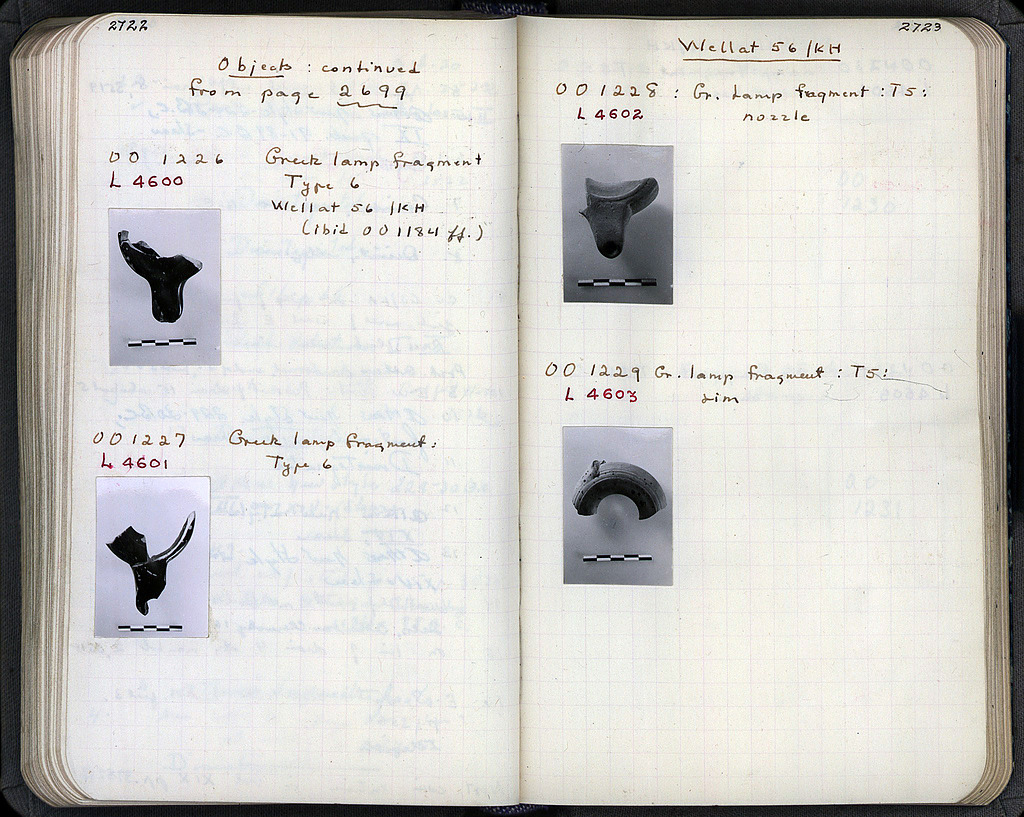 2722
Objects : continued
from page 2699
OO 1226 Greek lamp fragment
L 4600 Type 6
Well at 56/KH
(ibid OO 1184 ff.)
OO 1227 Greek lamp fragment:
L 4601 Type 6
2723
Well at 56/KH
OO 1228 : Gr. Lamp fragment : T5:
L 4602 nozzle
OO 1229 Gr. lamp fragment : T5:
L 4603 rim